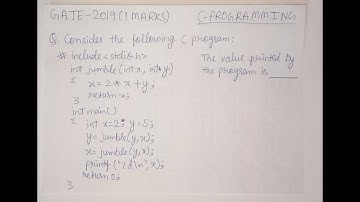 GATE-2019 (1 MARKS)
C-PROGRAMMING
Q. Consider the following C program:
# include <stdio.h>
int jumble(int x, int y)
{
x = 2 * x + y;
return x;
}
int main()
{
int x=2, y=5;
y= jumble(y,x);
x= jumble(y,x);
printf("%d\n", x);
return 0;
}
The value printed by
the program is ______